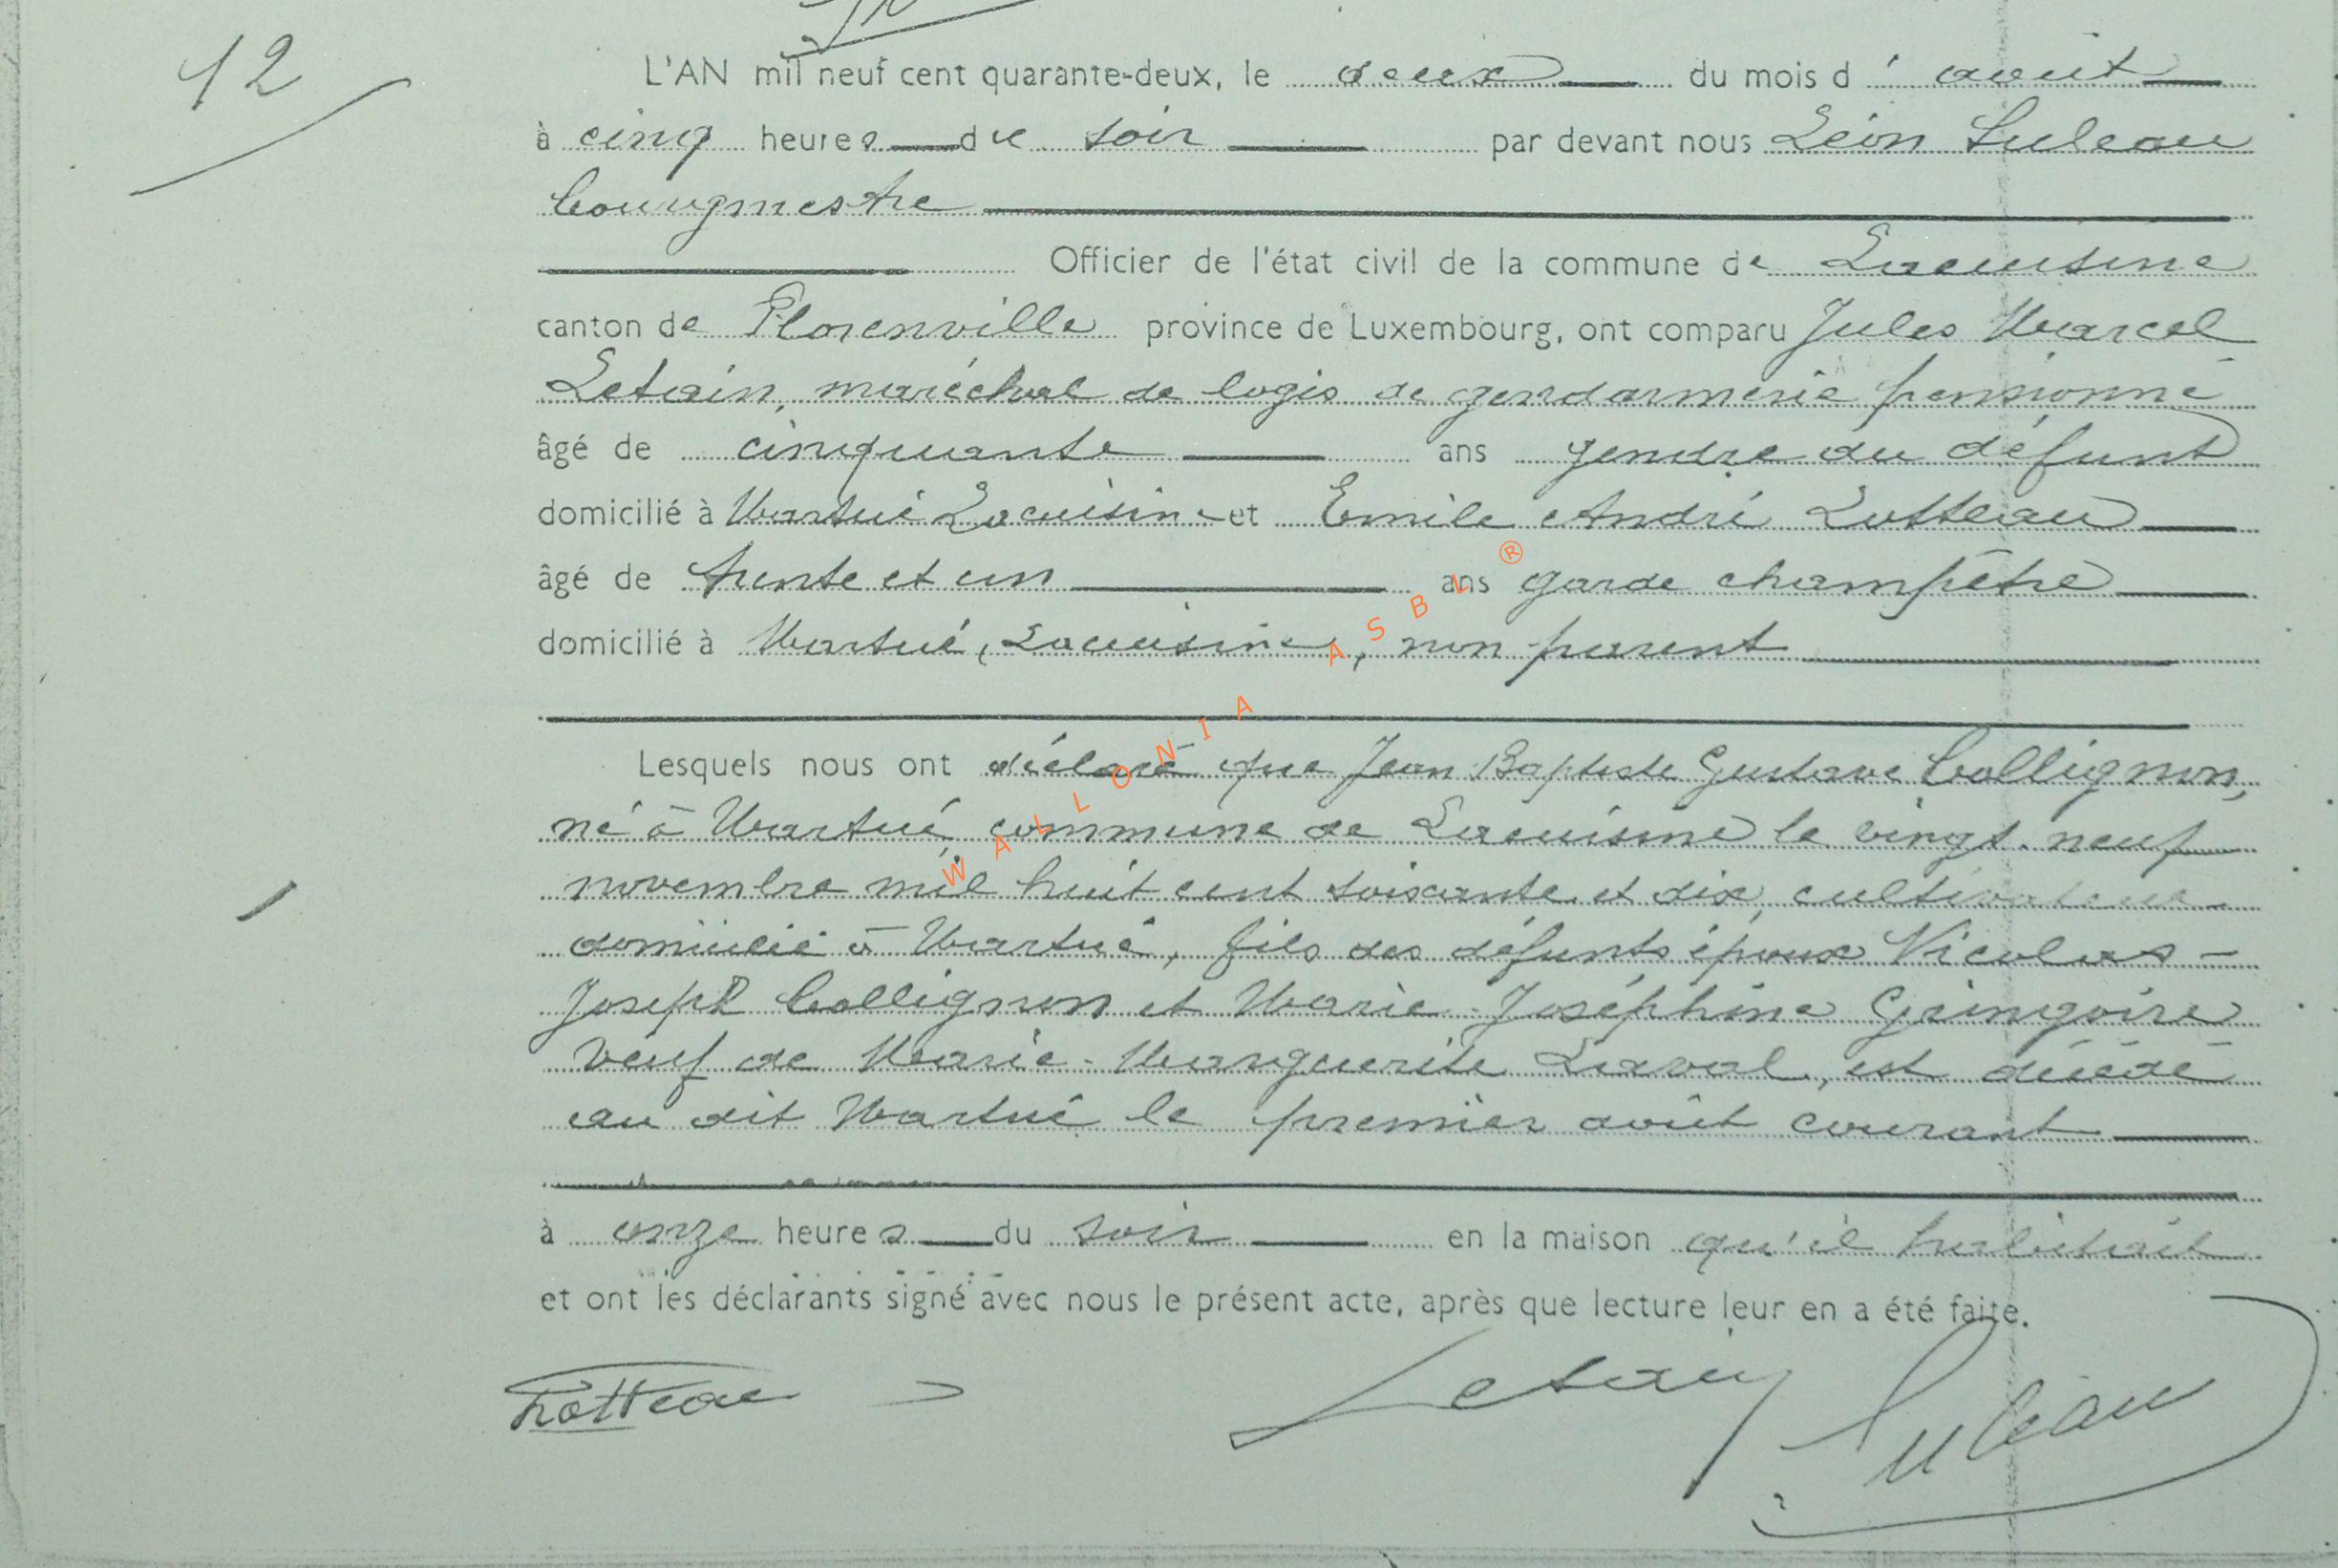 12
L'AN mil neuf cent quarante-deux, le deux du mois d' août
à cinq heures du soir par devant nous Léon Suleau
bourgmestre
Officier de l'état civil de la commune de Lacuisine
canton de Florenville province de Luxembourg, ont comparu Jules Marcel
Letain, maréchal de logis de gendarmerie pensionné
âgé de cinquante ans gendre du défunt
domicilié à Martué Lacuisine et Emile André Lotteau
âgé de trente et un ans garde champêtre
domicilié à Martué, Lacuisine, non parent
Lesquels nous ont déclaré que Jean Baptiste Gustave Collignon,
né à Martué commune de Lacuisine le vingt-neuf
novembre mil huit cent soixante et dix, cultivateur
domicilié à Martué, fils des défunts époux Nicolas-
Joseph Collignon et Marie-Joséphine Gringoire
veuf de Marie-Marguerite Laval, est décédé
au dit Martué le premier août courant
à onze heures du soir en la maison qu'il habitait
et ont les déclarants signé avec nous le présent acte, après que lecture leur en a été faite.
Lotteau Letain Suleau
WALLONIA ASBL ®